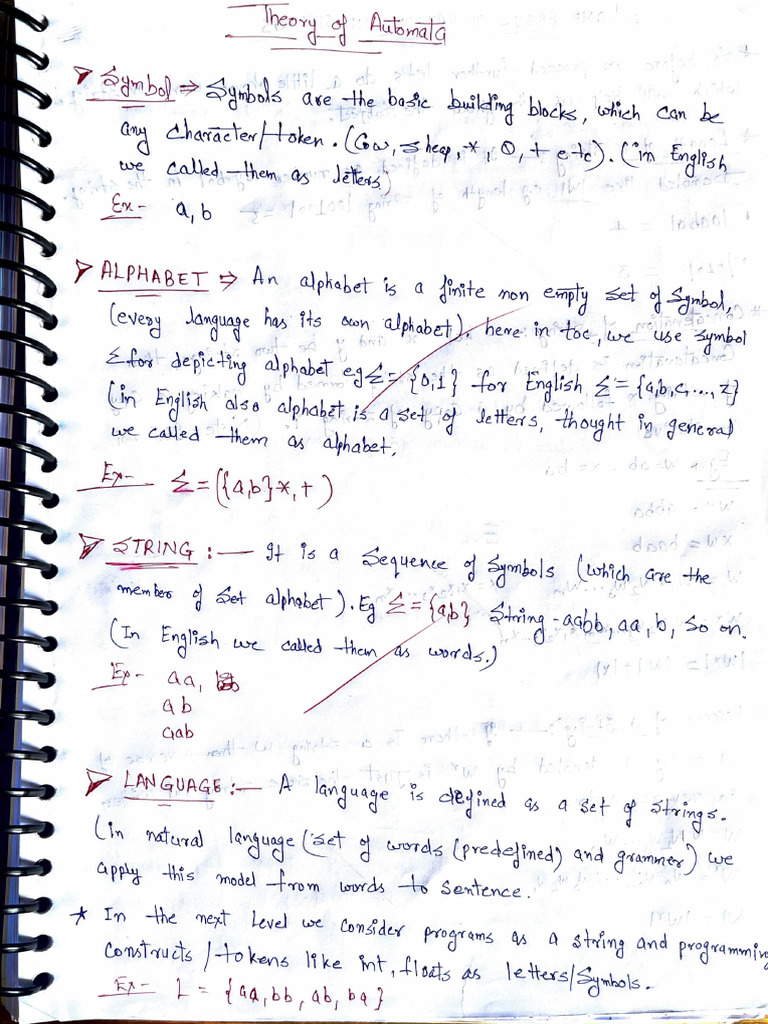 Theory of Automata
Symbol ⇒ Symbols are the basic building blocks, which can be
any character/token. (Cow, sheep, *, 0, + etc). (in English
we called them as letters)
Ex- a, b
ALPHABET ⇒ An alphabet is a finite non empty set of symbol,
(every language has its own alphabet). here in toc, we use symbol
Σ for depicting alphabet eg Σ = {0,1} for English Σ = {a,b,c,...,z}
(in English also alphabet is a set of letters, thought in general
we called them as alphabet,
Ex- Σ = ({a,b}*,+)
STRING :— It is a sequence of symbols (which are the
member of set alphabet). Eg Σ = {a,b} String - aabb, aa, b, so on.
(In English we called them as words.)
Ex- aa,
ab
aab
LANGUAGE :— A language is defined as a set of strings.
(in natural language (set of words (predefined) and grammer) we
apply this model from words to sentence.
* In the next level we consider programs as a string and programming
constructs/tokens like int, floats as letters/symbols.
Ex- L = {aa, bb, ab, ba}